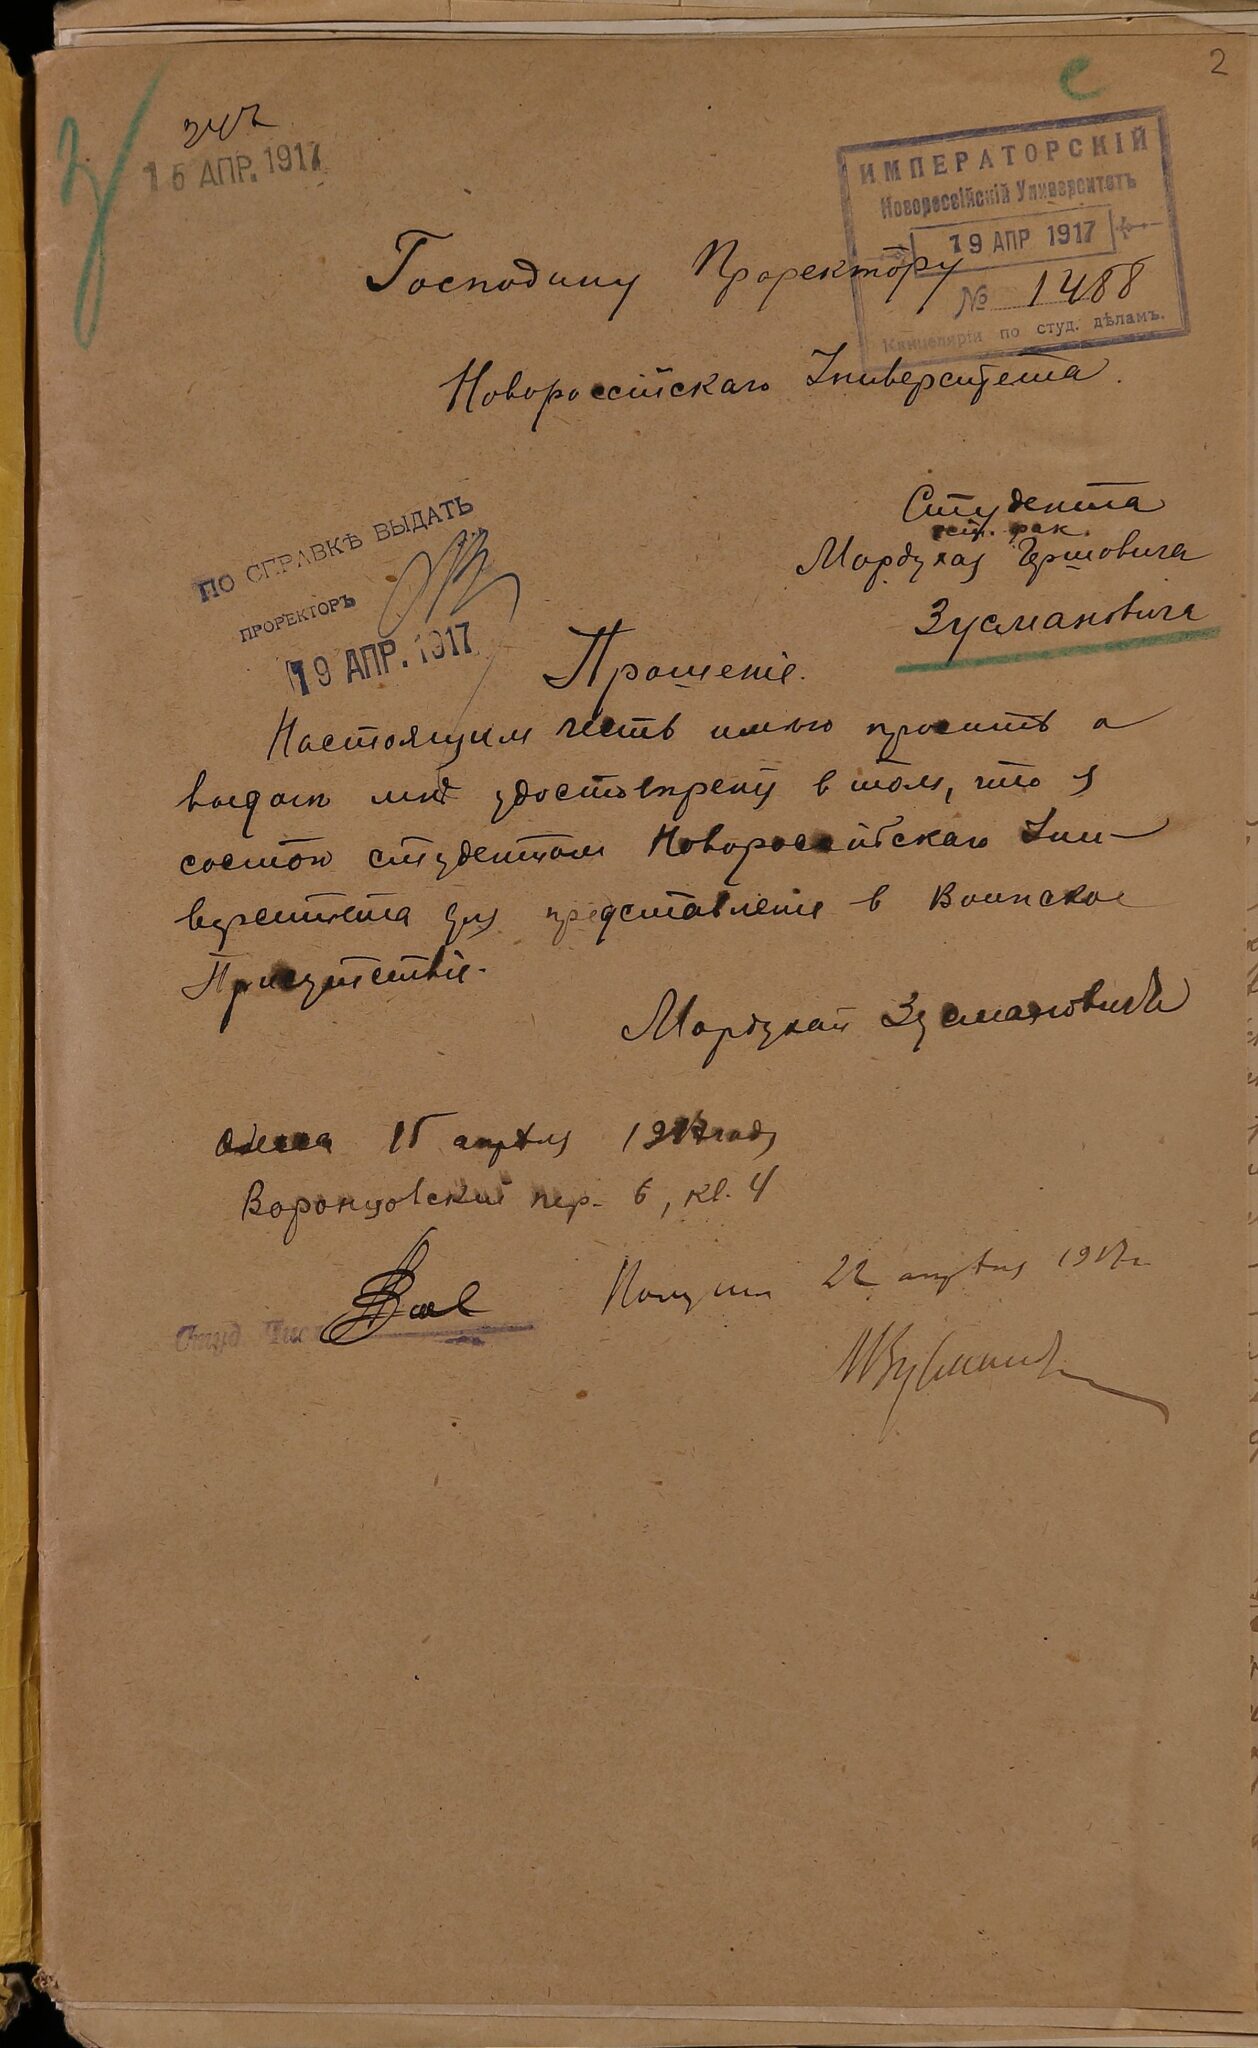 2
15 АПР. 1917
ИМПЕРАТОРСКІЙ
Новороссійскій Университетъ
19 АПР 1917
№ 1488
Канцелярія по студ. дѣламъ.
Господину Проректору
Новороссійскаго Университета.
Студента
ист. фак.
Мордухая Гершовича
Зусмановича
ПО СПРАВКѢ ВЫДАТЬ
ПРОРЕКТОРЪ
19 АПР. 1917
Прошеніе.
Настоящим честь имѣю просить о
выдачѣ мнѣ удостовѣренія в том, что я
состою студентом Новороссійскаго Уни-
верситета для представленія в Воинское
Присутствіе.
Мордухай Зусманович
Одесса 15 апрѣля 1917 года
Воронцовскій пер. 6, кв. 4
Получил 22 апрѣля 1917 г.
Студ.
МЗусманович